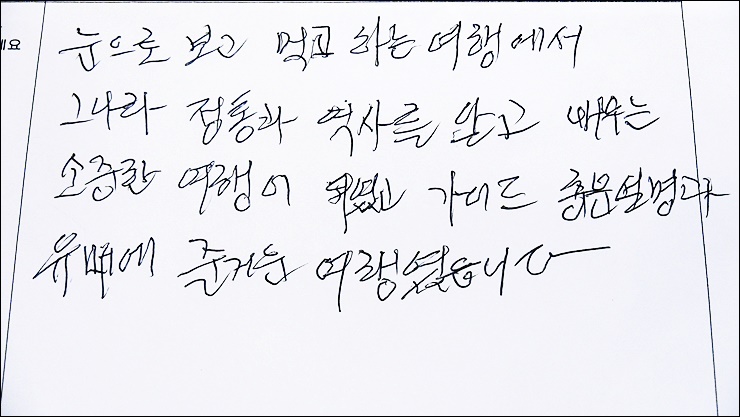 세요
눈으로 보고 먹고 하는 여행에서
그나라 전통과 역사를 알고 배우는
소중한 여행이 되였고 가이드 충분설명과
유머에 즐거운 여행였습니다